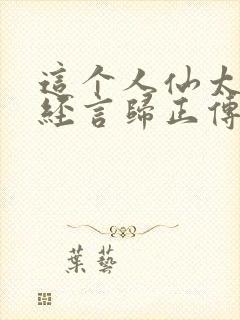 這个人仙太
經言歸正傳
葉藝